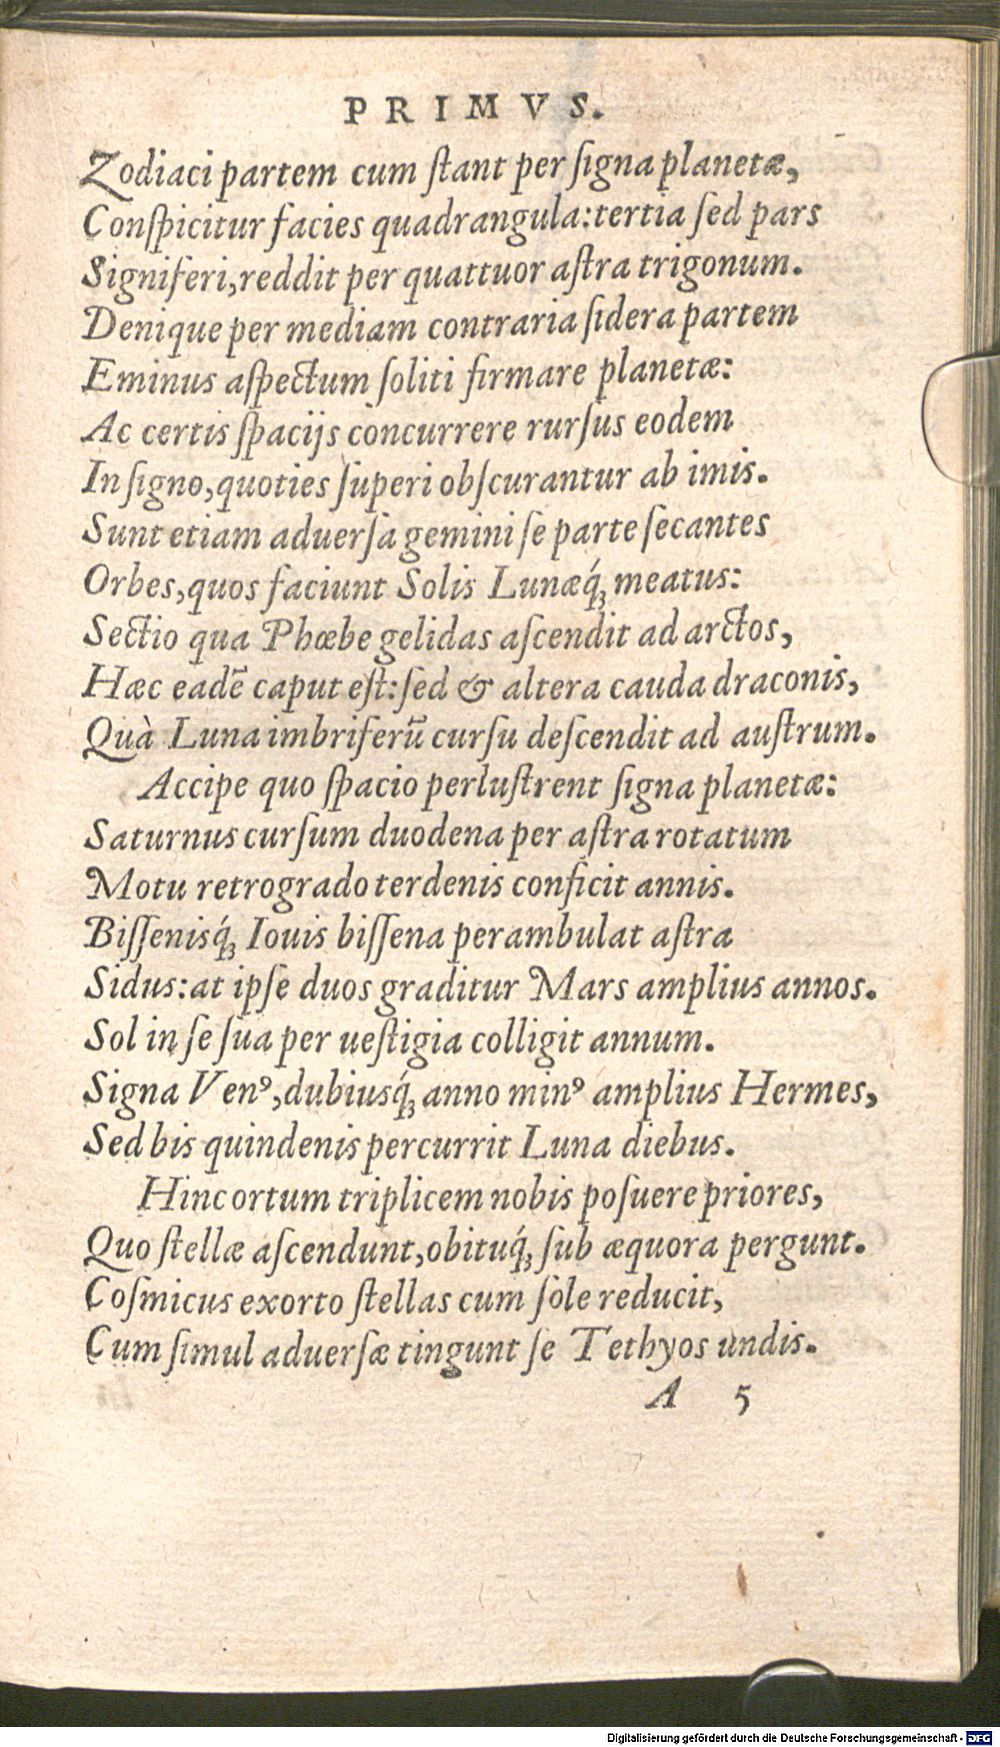 PRIMVS.
Zodiaci partem cum ſtant per ſigna planetæ,
Conſpicitur facies quadrangula: tertia ſed pars
Signiferi, reddit per quattuor aſtra trigonum.
Denique per mediam contraria ſidera partem
Eminus aſpectum ſoliti firmare planetæ:
Ac certis ſpacijs concurrere rurſus eodem
In ſigno, quoties ſuperi obſcurantur ab imis.
Sunt etiam aduerſa gemini ſe parte ſecantes
Orbes, quos faciunt Solis Lunæq́ꝫ meatus:
Sectio qua Phœbe gelidas aſcendit ad arctos,
Hæc eadē caput eſt: ſed & altera cauda draconis,
Quà Luna imbriferū curſu deſcendit ad auſtrum.
Accipe quo ſpacio perluſtrent ſigna planetæ:
Saturnus curſum duodena per aſtra rotatum
Motu retrogrado terdenis conficit annis.
Biſſenisq́ꝫ Iouis biſſena perambulat aſtra
Sidus: at ipſe duos graditur Mars amplius annos.
Sol in ſe ſua per ueſtigia colligit annum.
Signa Venꝰ, dubiusq́ꝫ anno minꝰ amplius Hermes,
Sed bis quindenis percurrit Luna diebus.
Hinc ortum triplicem nobis poſuere priores,
Quo ſtellæ aſcendunt, obituq́ꝫ ſub æquora pergunt.
Coſmicus exorto ſtellas cum ſole reducit,
Cum ſimul aduerſæ tingunt ſe Tethyos undis.
A 5
Digitalisierung gefördert durch die Deutsche Forschungsgemeinschaft - DFG